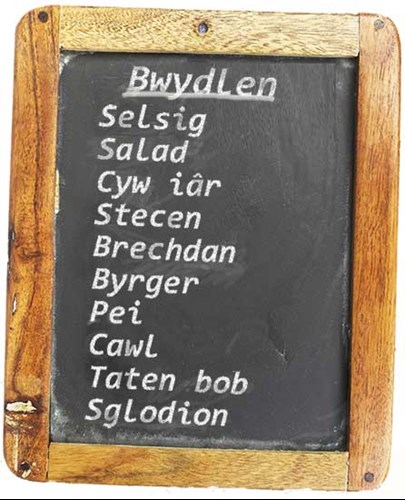 Bwydlen
Selsig
Salad
Cyw iâr
Stecen
Brechdan
Byrger
Pei
Cawl
Taten bob
Sglodion